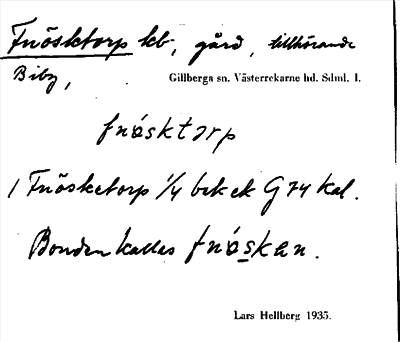 Fnösktorp kb, gård, tillhörande
Biby,
Gillberga sn. Västerrekarne hd. Sdml. 1.
fnøsktɔrp
1 Fnösketorp 1/4 bek ek G 74 Kal.
Bonden kallas fnøskan.
Lars Hellberg 1935.